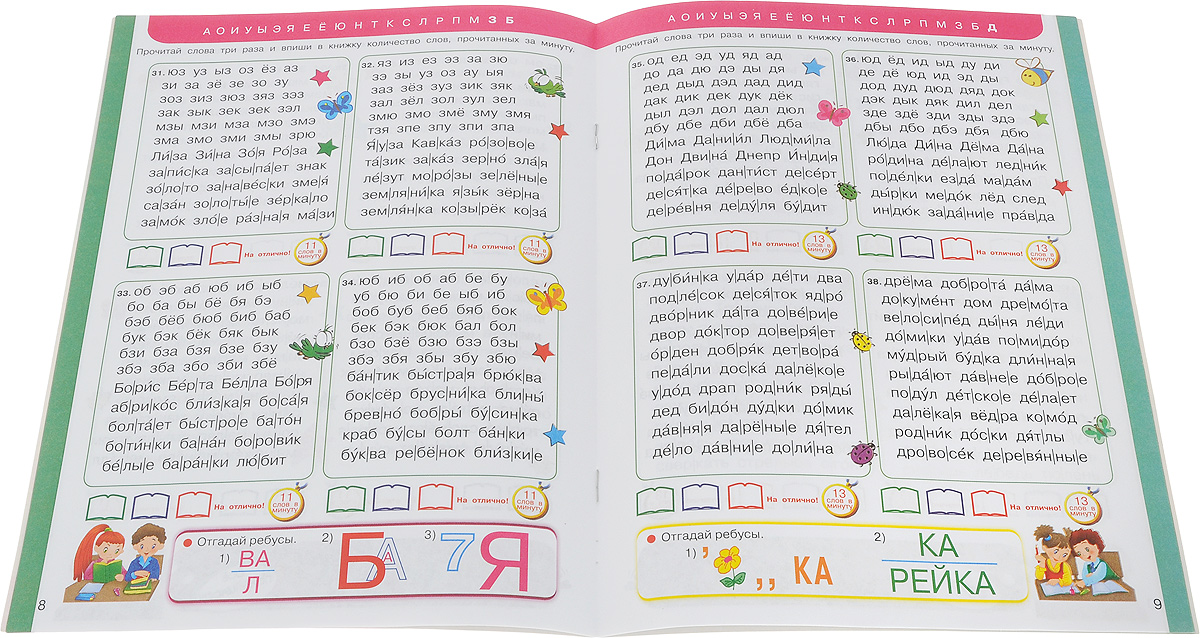 А О И У Ы Э Я Е Ё Ю Н Т К С Л Р П М З Б
Прочитай слова три раза и впиши в книжку количество слов, прочитанных за минуту.
31. юз уз ыз оз ёз аз
зи за зё зе зо зу
зоз зиз зюз зяз зэз
зак зык зек зек зэл
мзы мзи мза мзо змэ
зма змо зми змы зрю
Ли́|за Зи́|на Зо́|я Ро́|за
за|пи́с|ка за|сы|па́|ет знак
зо́|ло|то за|на|ве́с|ки зме|я́
са|за́н зо|ло|ты́|е зе́р|ка|ло
за|мо́к зло́|е ра́з|на|я ма́|зи
На отлично!
11 слов в минуту
32. яз из ез эз за зю
зэ зы уз оз ау ыя
заз зёз зуз зик зяк
зал зёл зол зул зел
змю змо змё зму змя
тзя зпе зпу зпи зпа
Я́|у|за Кав|ка́з ро́|зо|во|е
та́|зик за|ка́з зер|но́ зла́|я
ле́|зут мо|ро́|зы зе|лё|ны|е
зем|ля|ни́|ка я|зы́к зёр|на
зем|ля́н|ка ко|зы|рёк ко|за́
На отлично!
11 слов в минуту
33. об эб аб юб иб ыб
бо ба бы бё бя бэ
бэб бёб бюб биб баб
бук бэк бёк бяк бык
бзи бза бзя бзе бзу
збэ зба збо зби збё
Бо|ри́с Бе́р|та Бе́л|ла Бо́|ря
аб|ри|ко́с бли́з|ка|я бо|са́|я
бол|та́|ет бы́ст|ро|е ба|то́н
бо|ти́н|ки ба|на́н бо|ро|ви́к
бе́|лы|е ба|ра́н|ки лю́|бит
На отлично!
11 слов в минуту
34. юб иб об аб бе бу
уб бю би бе ыб иб
боб буб беб бяб бок
бек бэк бюк бал бол
бзо бзё бзю бзэ бзы
збэ збя збы збу збю
ба́н|тик бы́ст|ра|я брю́к|ва
бок|сёр брус|ни́|ка бли|ны́
брев|но́ боб|ры́ бу́|син|ка
краб бу́|сы болт ба́н|ки
бу́к|ва ре|бё|нок бли́з|ки|е
На отлично!
11 слов в минуту
Отгадай ребусы.
1) ВА
Л
2) БА
3) 7Я
8
А О И У Ы Э Я Е Ё Ю Н Т К С Л Р П М З Б Д
Прочитай слова три раза и впиши в книжку количество слов, прочитанных за минуту.
35. од ед эд уд яд ад
до да дю дэ ды дя
дед дыд дэд дад дид
дак дик дек дук дёк
дыл дэл дол дал дюл
дбу дбе дби дбё дба
Ди́|ма Да|ни|и́л Люд|ми́|ла
Дон Дви|на́ Днепр И́н|ди|я
по|да́|рок дан|ти́ст де|се́рт
де|ся́т|ка де́|ре|во е́д|ко|е
де|ре́в|ня де|ду́|ля бу́|дит
На отлично!
13 слов в минуту
36. юд ёд ид ыд ду ди
де дё юд ид эд ды
дод дуд дюд дяд док
дэк дык дяк дил дел
зде здё зди зды здэ
дбы дбо дбэ дбя дбю
Лю́|да Ди́|на Дё|ма Да́|на
ро́|ди|на де́|ла|ют лед|ни́к
по|де́л|ки ез|да́ ма|да́м
ды́р|ки ме|до́к лёд след
ин|дю́к за|да́|ни|е пра́в|да
На отлично!
13 слов в минуту
37. ду|би́н|ка у|да́р де́|ти два
под|ле́|сок де|ся́|ток яд|ро́
дво́р|ник да́|та до|ве́|ри|е
двор до́к|тор до|ве|ря́|ет
о́р|ден доб|ря́к дет|во|ра́
пе|да́|ли дос|ка́ да|лё|ко|е
у|до́д драп род|ни́к ря|ды́
дед би|до́н ду́д|ки до́|мик
да́в|ня|я да|рё|ны|е дя́|тел
де́|ло да́в|ни|е до|ли́|на
На отлично!
13 слов в минуту
38. дрё|ма доб|ро|та́ да́|ма
до|ку|ме́нт дом дре|мо́|та
ве|ло|си|пе́д ды́|ня ле́|ди
до́|ми|ки у|да́в по|ми|до́р
му́д|рый бу́д|ка дли́н|на|я
ры|да́|ют да́в|не|е до́б|ро|е
по|ду́л де́т|ско|е де́|ла|ет
да|лё|ка|я вёд|ра ко|мо́д
род|ни́к до́с|ки дя́т|лы
дро|во|се́к де|ре|вя́н|ны|е
На отлично!
13 слов в минуту
Отгадай ребусы.
1) ’ ,, КА
2) КА
РЕЙКА
9